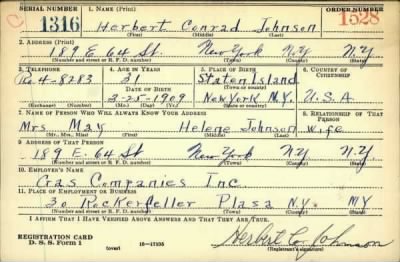 SERIAL NUMBER 1. NAME (Print) ORDER NUMBER
1316 Herbert Conrad Johnson 1528
(First) (Middle) (Last)
2. ADDRESS (Print)
189 E. 64 St. New York N.Y. N.Y
(Number and street or R. F. D. number) (Town) (County) (State)
3. TELEPHONE 4. AGE IN YEARS 5. PLACE OF BIRTH 6. COUNTRY OF CITIZENSHIP
4-8283 31 Staten Island
DATE OF BIRTH (Town or county)
2-25-1909 New York N.Y. U.S.A
(Exchange) (Number) (Mo.) (Day) (Yr.) (State or country)
7. NAME OF PERSON WHO WILL ALWAYS KNOW YOUR ADDRESS 8. RELATIONSHIP OF THAT PERSON
Mrs May Helene Johnson wife
(Mr., Mrs., Miss) (First) (Middle) (Last)
9. ADDRESS OF THAT PERSON
189 E. 64 St New York N.Y N.Y
(Number and street or R. F. D. number) (Town) (County) (State)
10. EMPLOYER'S NAME
Gas Companies Inc
11. PLACE OF EMPLOYMENT OR BUSINESS
30 Rockerfeller Plasa N.Y. NY
(Number and street or R. F. D. number) (Town) (County) (State)
I AFFIRM THAT I HAVE VERIFIED ABOVE ANSWERS AND THAT THEY ARE TRUE.
REGISTRATION CARD
D. S. S. Form 1 (over) 16-17105 Herbert C. Johnson
(Registrant's signature)